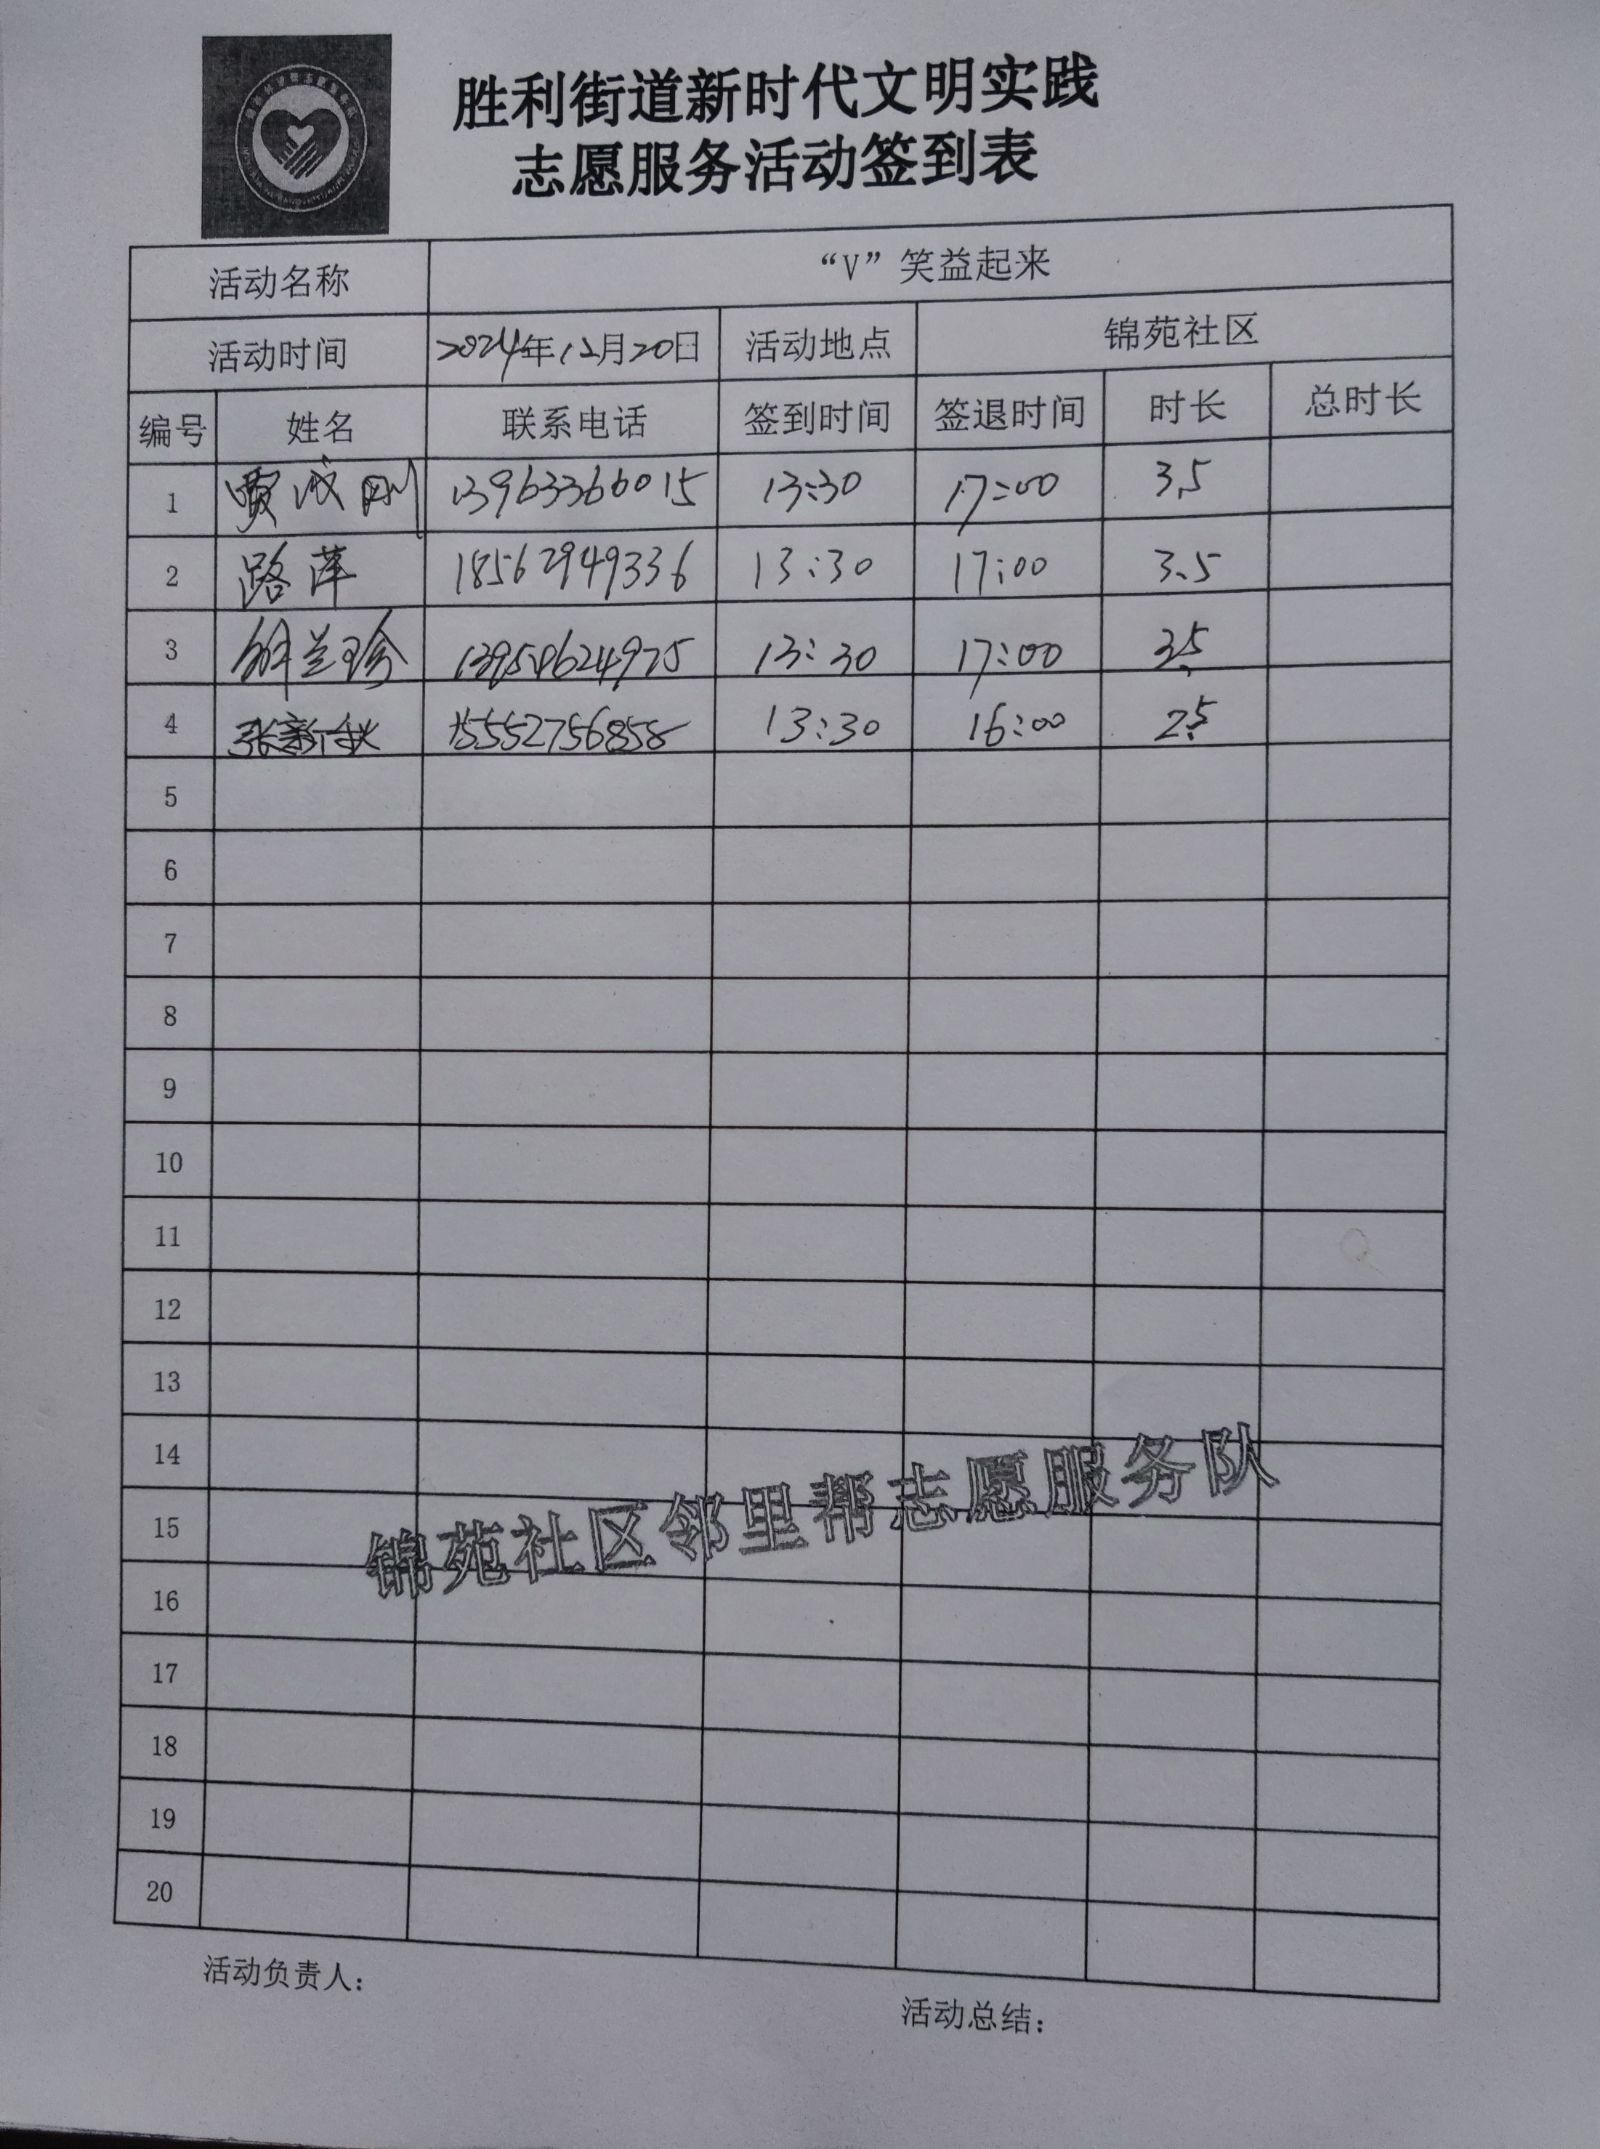 胜利街道新时代文明实践
志愿服务活动签到表
活动名称 “V”笑益起来
活动时间 2024年12月20日 活动地点 锦苑社区
编号 姓名 联系电话 签到时间 签退时间 时长 总时长
1 贾成刚 13963366015 13:30 17:00 3.5
2 路萍 18562949336 13:30 17:00 3.5
3 兰珍 13:30 17:00 3.5
4 张新秋 15552756858 13:30 16:00 2.5
5
6
7
8
9
10
11
12
13
14
锦苑社区邻里帮志愿服务队
15
16
17
18
19
20
活动负责人：
活动总结：